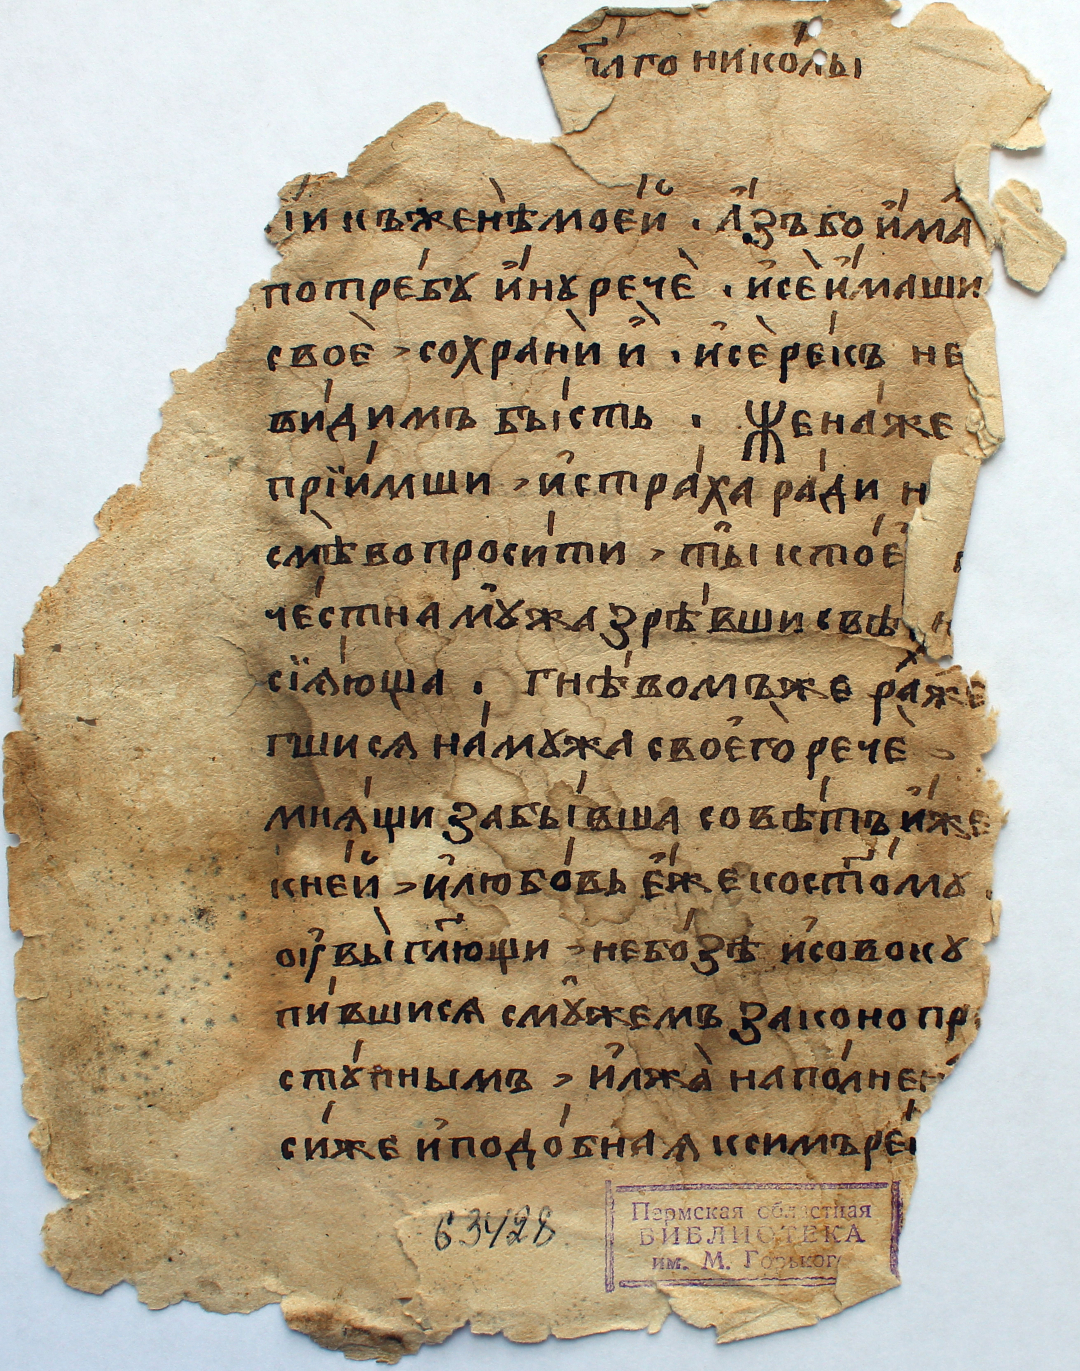 аго николы
іи къ женѣ моей · азъ бо има
потребу ину рече · и се имаши
свое , сохрани и · и се рекъ не
видимъ бысть · Жена же
пріимши , и страха ради н
смѣ вопросити , ты кто е
честна мужа зрѣвши свѣ н
сіяюща · гнѣвомъ же раже
гшися на мужа своего рече
мнящи забывша совѣтъ иже
к ней , и любовь еже ко стому
оувы глющи , не бо зѣ и совоку
пившися смужемъ законопр
ступнымъ , и лжа наполнен
си же и подобная к симъ рек
63428
Пермская областная
БИБЛИОТЕКА
им. М. Горького